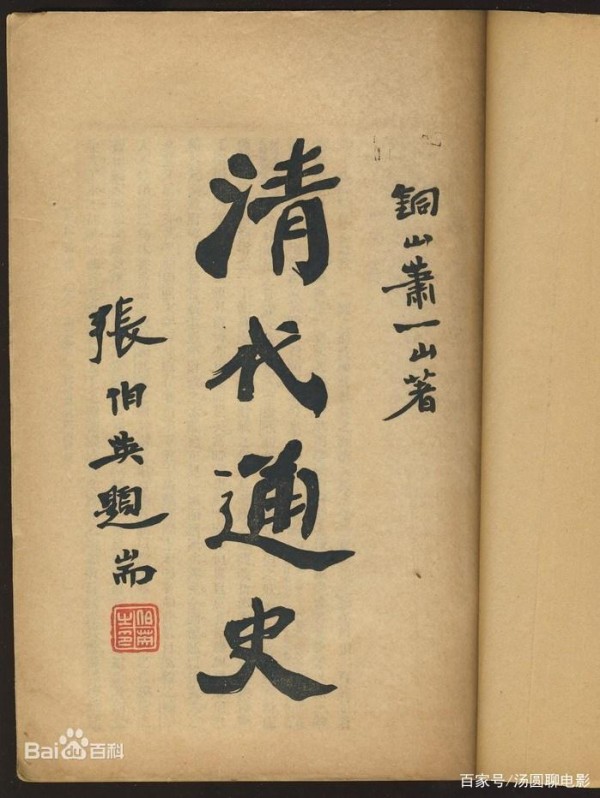 銅山蕭一山著
清代通史
張伯英題耑
Bai du 百科
百家号/汤圆聊电影